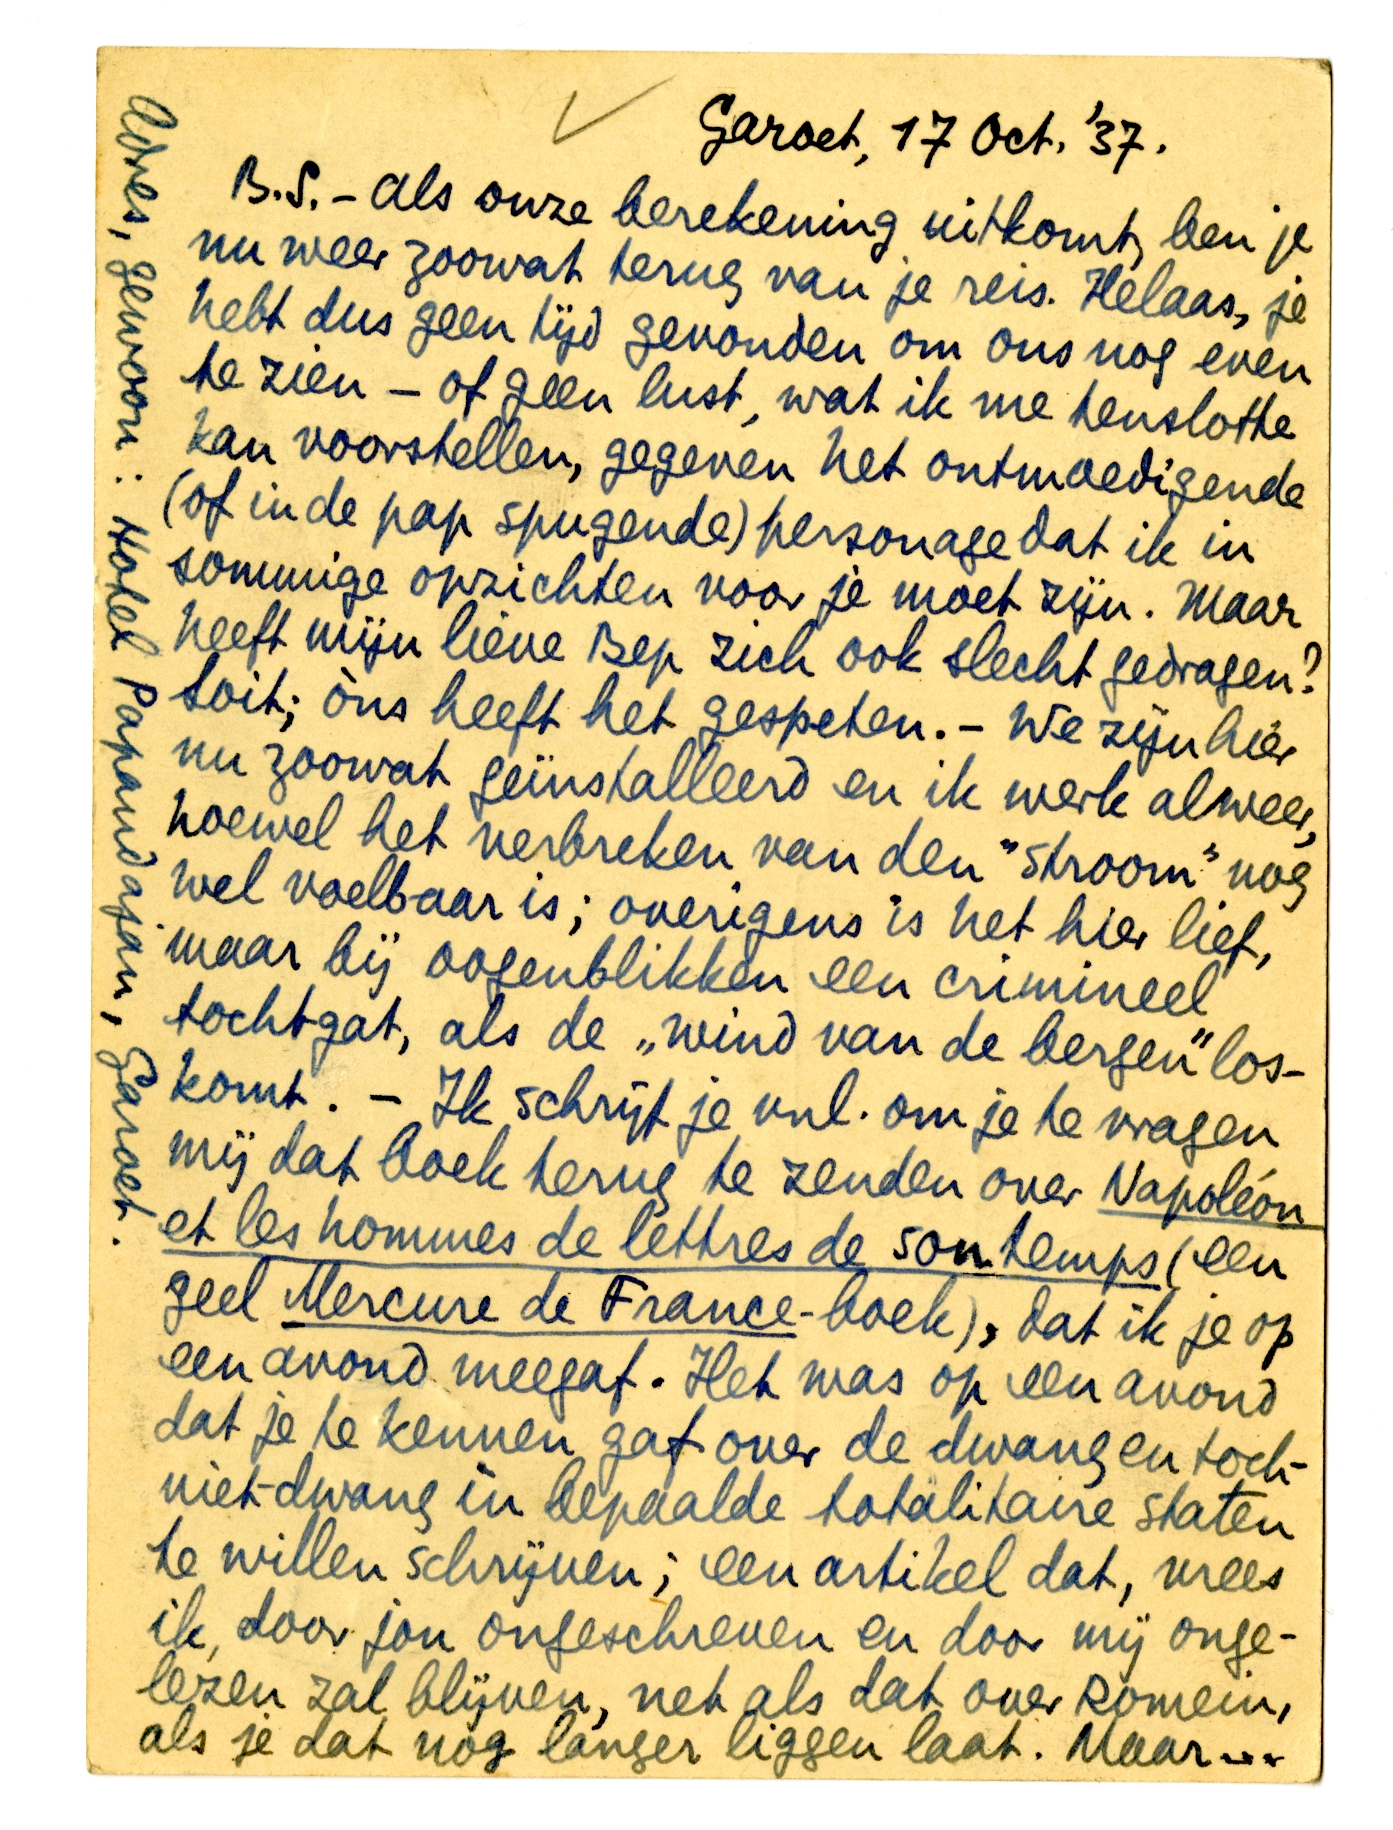 Garoet, 17 Oct. '37.
B.S. – Als onze berekening uitkomt, ben je
nu weer zoowat terug van je reis. Helaas, je
hebt dus geen tijd gevonden om ons nog even
te zien – of geen lust, wat ik me tenslotte
kan voorstellen, gegeven het ontmoedigende
(of in de pap spugende) personage dat ik in
sommige opzichten voor je moet zijn. Maar
heeft mijn lieve Bep zich ook slecht gedragen?
Soit; òns heeft het gespeten. – We zijn hier
nu zoowat geïnstalleerd en ik werk alweer,
hoewel het verbreken van den "stroom" nog
wel voelbaar is; overigens is het hier lief,
maar bij oogenblikken een crimineel
tochtgat, als de „wind van de bergen" los-
komt. – Ik schrijf je vnl. om je te vragen
mij dat boek terug te zenden over Napoléon
et les hommes de lettres de son temps (een
geel Mercure de France-boek), dat ik je op
een avond meegaf. Het was op een avond
dat je te kennen gaf over de dwang en toch-
niet-dwang in bepaalde totalitaire staten
te willen schrijven; een artikel dat, vrees
ik, door jou ongeschreven en door mij onge-
lezen zal blijven, net als dat over Romein,
als je dat nog langer liggen laat. Maar...
Adres, gewoon: Hotel Papandajan, Garoet.